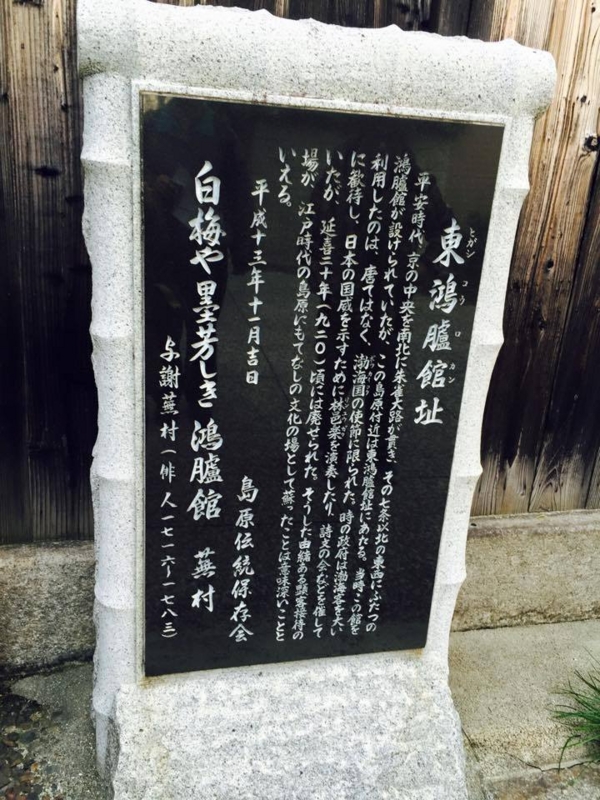 東鴻臚館址
とがシ コウ ロ カン
平安時代、京の中央を南北に朱雀大路が貫き、その七条以北の東西にふたつの
鴻臚館が設けられていたが、この島原付近は東鴻臚館址にあたる。当時この館を
利用したのは、唐ではなく、渤海国の使節に限られた。時の政府は渤海客を大い
に歓待し、日本の国威を示すために林邑楽を演奏したり、詩文の会などを催して
いたが、延喜二十年(九二〇)頃には廃せられた。そうした由緒ある顕客接待の
場が、江戸時代の島原にもてなしの文化の場として蘇ったことは意味深いことと
いえる。
平成十三年十一月吉日
島原伝統保存会
白梅や墨芳しき鴻臚館 蕪村
与謝蕪村(俳人一七一六~一七八三)